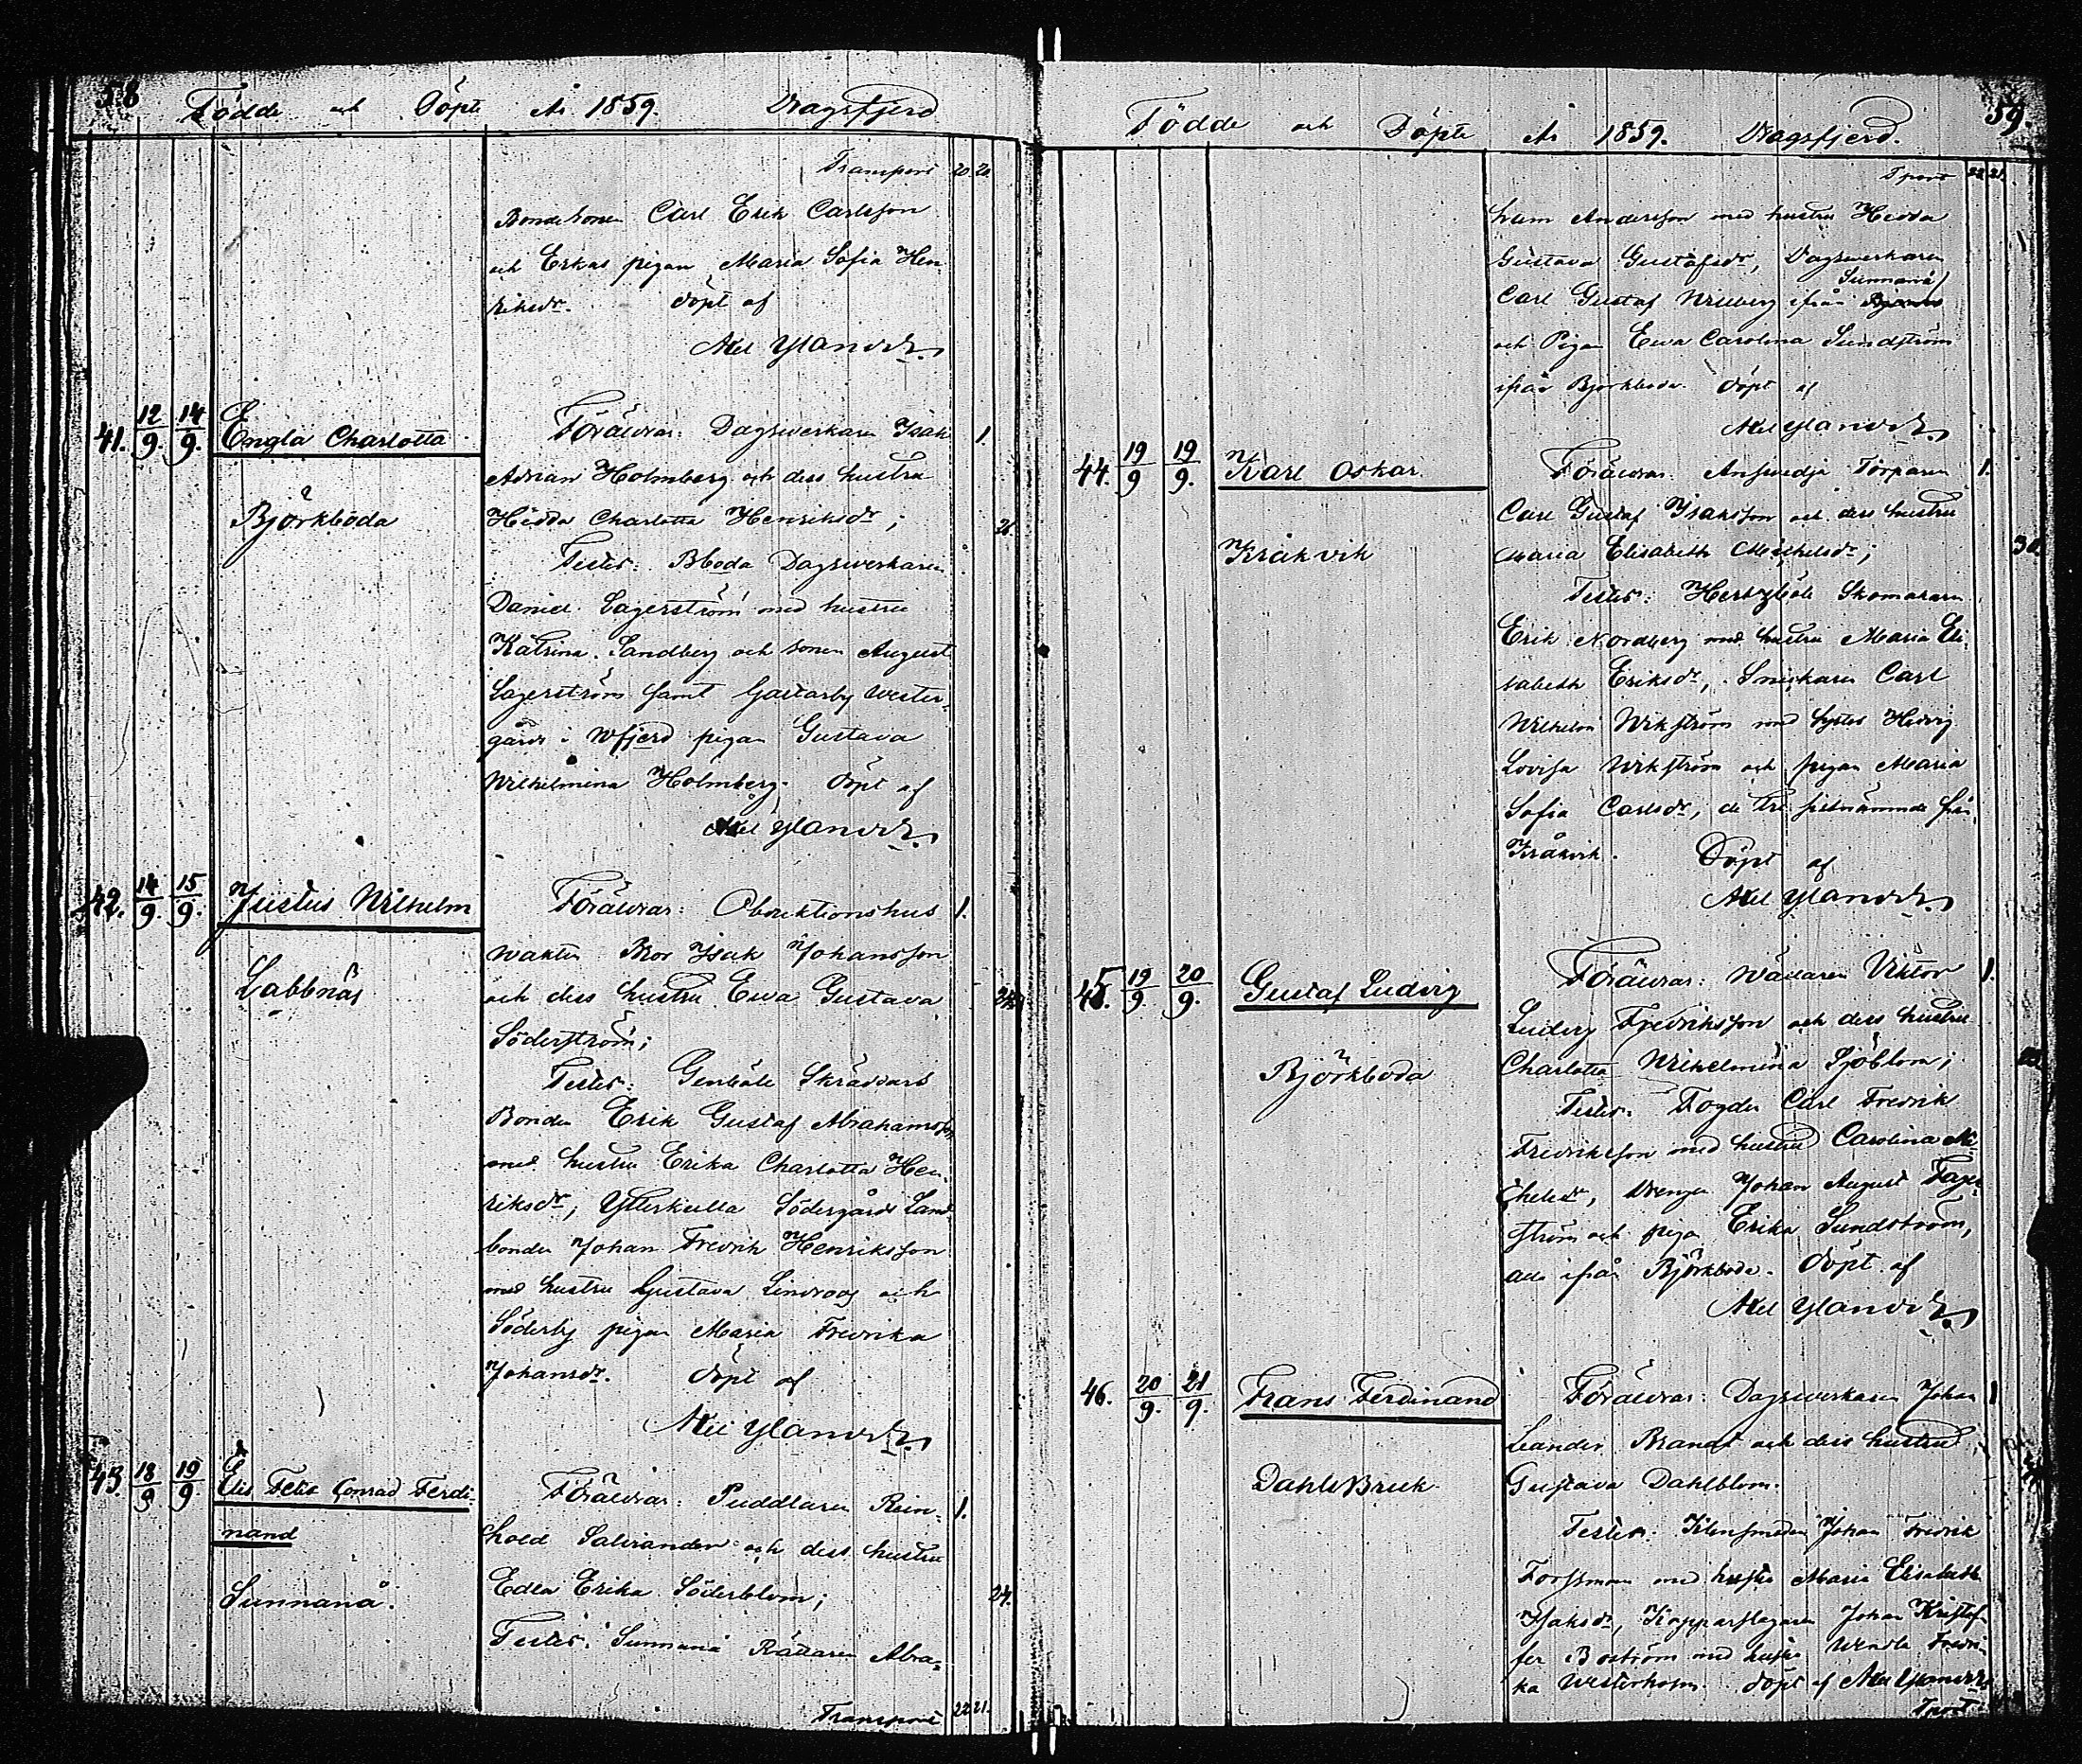 58
Födde och Döpte År 1859. Dragsfjerd
Transport 20. 20.
Bondesonen Carl Erik Carlsson
och Erkas pigan Maria Sofia Hen-
riksdr. döpt af
Axel Ylander
41. 12/9. 14/9. Engla Charlotta
Björkboda
Föräldrar: Dagsverkaren Isak 1.
Adrian Holmberg och dess hustru
Hedda Charlotta Henriksdr;
Testes: Bboda Dagsverkaren
Daniel Lagerström med hustru
Katrina Sandberg och sonen August
Lagerström samt Galtarby Wester-
gårds i Wfjerd pigan Gustava
Wilhelmina Holmberg. Döpt af
Axel Ylander
42. 14/9. 15/9. Justus Wilhelm
Labbnäs
Föräldrar: Obduktionshus 1.
wakten Bror Isak Johansson
och dess hustru Ewa Gustava
Söderström;
Testes: Genböle Skräddars
Bonden Erik Gustaf Abrahamsson
med hustru Erika Charlotta Hen-
riksdr, Ytterkulla Södergårds Land
bonden Johan Fredrik Henriksson
med hustru Gustava Lindroos och
Söderby pigan Maria Fredrika
Johansdr. döpt af
Axel Ylander
43. 18/9 19/9. Elis Felix Conrad Ferdi-
nand
Sunnanå.
Föräldrar: Puddlaren Rein- 1.
hold Salvander och dess hustru
Edla Erika Söderblom; 24.
Testes: Sunnanå Rättaren Abra-
Transport 22 21.
59.
Födde och Döpte År 1859. Dragsfjerd.
Tport 22 21.
ham Andersson med hustru Hedda
Gustava Gustafsdr, Dagsverkaren
Sunnanå
Carl Gustaf Willberg ifrån
och Pigan Ewa Carolina Sundström
ifrån Björkboda. döpt af
Axel Ylander
44. 19/9 19/9. Karl Oskar.
Kråkvik
Föräldrar: Torparen 1.
Carl Gustaf Isaksson och dess hustru
Maria Elisabeth Michelsdr; 30
Testes: Hertzböle Skomakaren
Erik Nordberg med hustru Maria Eli-
sabeth Eriksdr, Snickaren Carl
Wilhelm Wikström med syster Hedvig
Lovisa Wikström och pigan Maria
Sofia Carlsdr, de tre sistnämnde från
Kråkvik. Döpt af
Axel Ylander
45. 19/9. 20/9. Gustaf Ludvig
Björkboda
Föräldrar: Wällaren Viktor 1.
Ludvig Fredriksson och dess hustru
Charlotta Wilhelmina Sjöblom;
Testes: Fogden Carl Fredrik
Fredriksson med hustru Carolina Mi-
chelsdr, drengen Johan August Fager
ström och piga Erika Sundström,
alla ifrån Björkboda. Döpt af
Axel Ylander
46. 20/9. 21/9. Frans Ferdinand
Dahls Bruk
Föräldrar: Dagsverkaren Johan 1
Leander Brandt och dess hustru
Gustava Dahlblom.
Testes: Klensmeden Johan Fredrik
Forssman med hustru Maria Elisabeth
Isaksdr, Kopparslagaren Johan Kristof-
fer Boström med hustru Wendla Fredri-
ka Westerholm. döpt af Axel Ylander